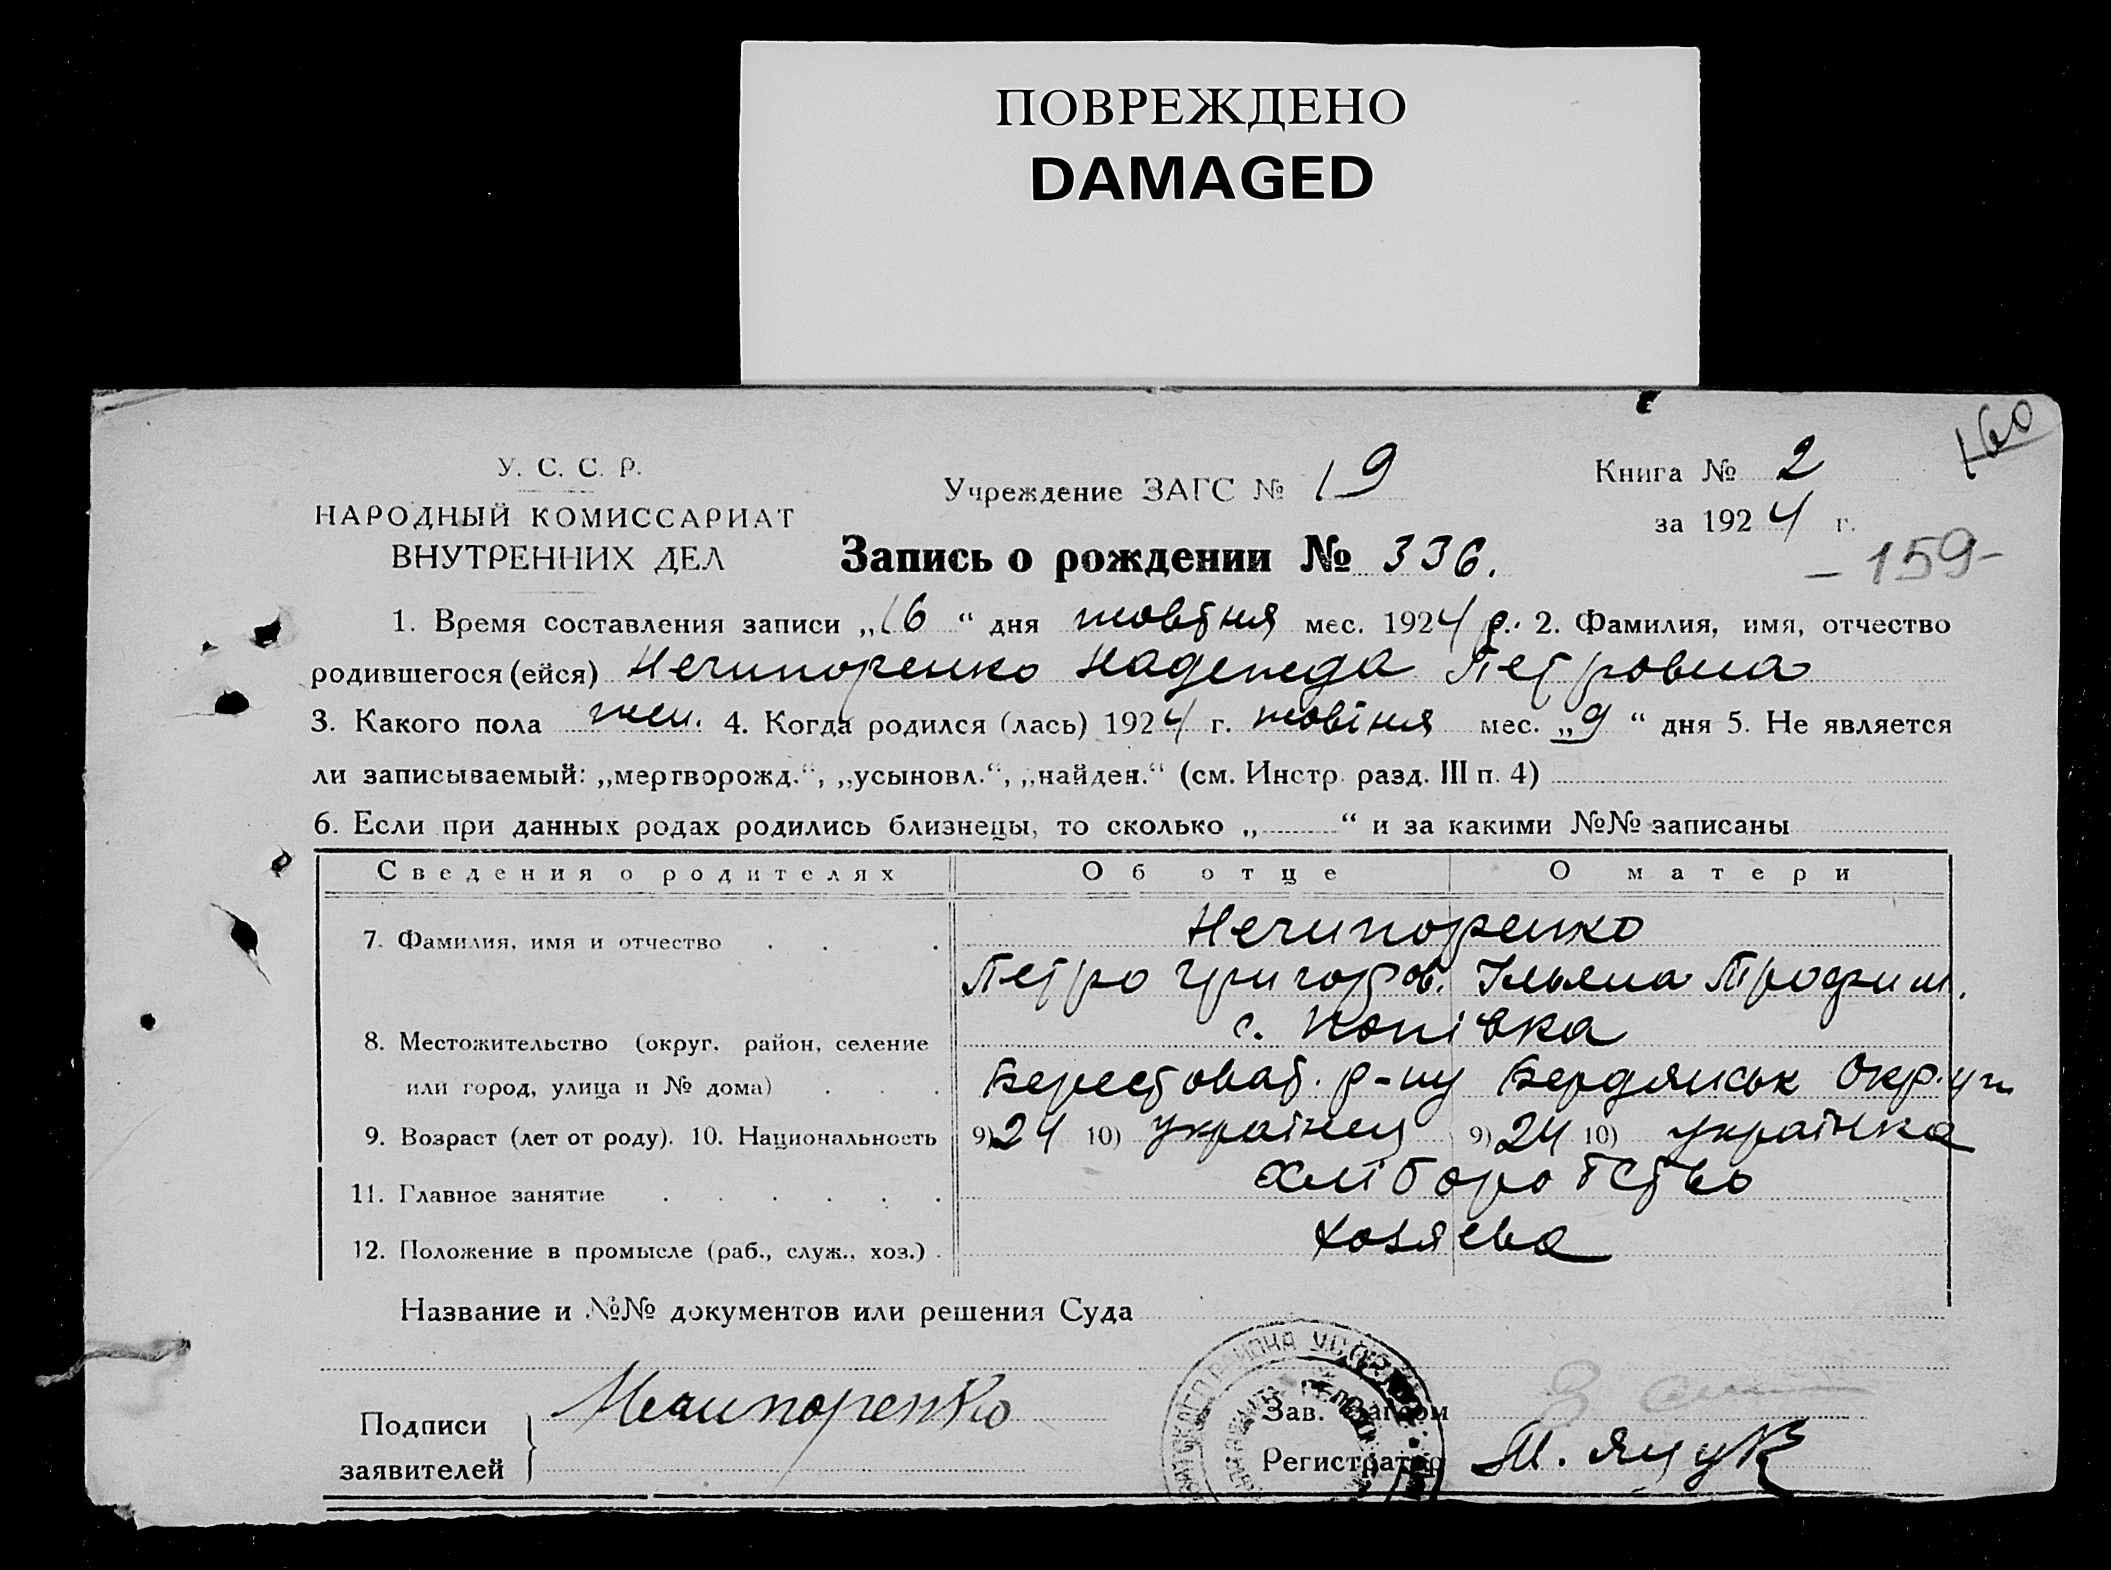 ПОВРЕЖДЕНО
DAMAGED
160
У. С. С. Р.
НАРОДНЫЙ КОМИССАРИАТ
ВНУТРЕННИХ ДЕЛ
Учреждение ЗАГС № 19
Книга № 2
за 1924 г.
Запись о рождении № 336.
– 159 –
1. Время составления записи „16“ дня жовтня мес. 1924 р. 2. Фамилия, имя, отчество
родившегося (ейся) Нечипоренко Надежда Петровна
3. Какого пола жен. 4. Когда родился (лась) 1924 г. жовтня мес. „9“ дня 5. Не является
ли записываемый: „мертворожд.“, „усыновл.“, „найден.“ (см. Инстр. разд. III п. 4)
6. Если при данных родах родились близнецы, то сколько „ “ и за какими №№ записаны
Сведения о родителях Об отце О матери
7. Фамилия, имя и отчество Нечипоренко
Петро Григоров. Ульяна Трофим.
8. Местожительство (округ, район, селение с. Попівка
или город, улица и № дома) Берестоват. р-ну Бердянськ Округи
9. Возраст (лет от роду). 10. Национальность 9) 24 10) українец 9) 24 10) українка
11. Главное занятие хліборобство
12. Положение в промысле (раб., служ., хоз.) хозяева
Название и №№ документов или решения Суда
Подписи
заявителей
Нечипоренко
Зав. Загсом
Регистратор
РАЙОНА У.С.С.Р.